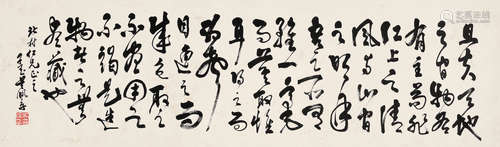 且夫天地
之間物各
有主苟非
江上之清
風与山間
之明月
吾之所有
雖一毫
而莫取惟
耳得之而
為聲
目遇之而
成色取之
無禁用之
不竭是造
物者之無
盡藏也
仁兄正之
易拍全球